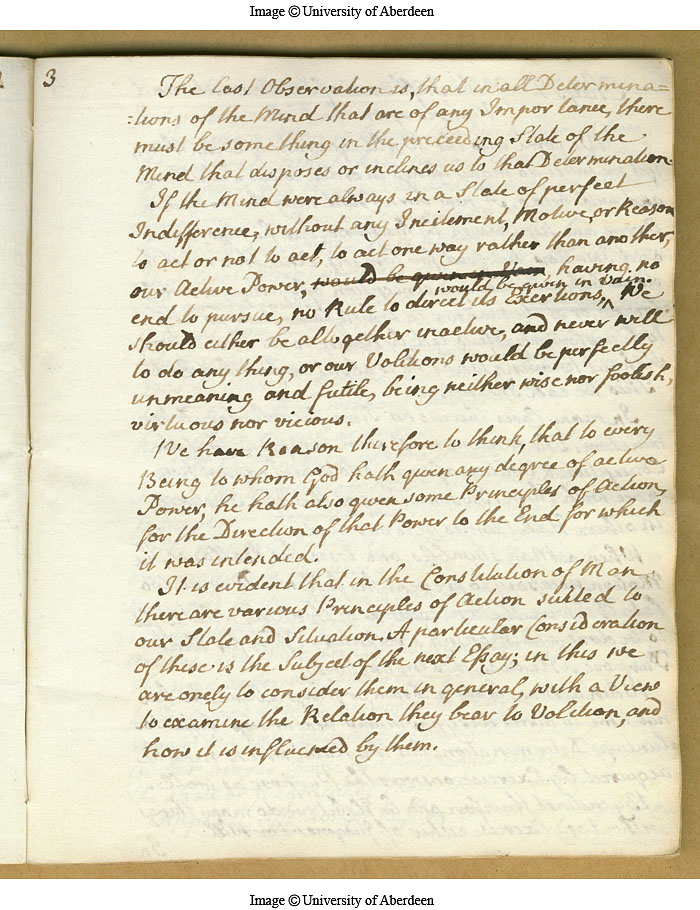 Image © University of Aberdeen
3
The last Observation is, that in all Determina=
=tions of the Mind that are of any Importance, there
must be something in the preceeding State of the
Mind that disposes or inclines us to that Determination.
If the Mind were always in a State of perfect
Indifference, without any Incitement, Motive, or Reason
to act or not to act, to act one way rather than another,
our Active Power, would be given in Vain, having no
end to pursue, no Rule to direct its Exertions, ^ would be given in vain. We
should either be alltogether inactive, and never will
to do any thing, or our Volitions would be perfectly
unmeaning and futile, being neither wise nor foolish,
virtuous nor vicious.
We have Reason therefore to think, that to every
Being to whom God hath given any degree of active
Power, he hath also given some Principles of Action,
for the Direction of that Power to the End for which
it was intended.
It is evident that in the Constitution of Man
there are various Principles of Action suited to
our State and Situation. A particular Consideration
of these is the Subject of the next Essay; in this we
are onely to consider them in general, with a View
to examine the Relation they bear to Volition, and
how it is influenced by them.
Image © University of Aberdeen